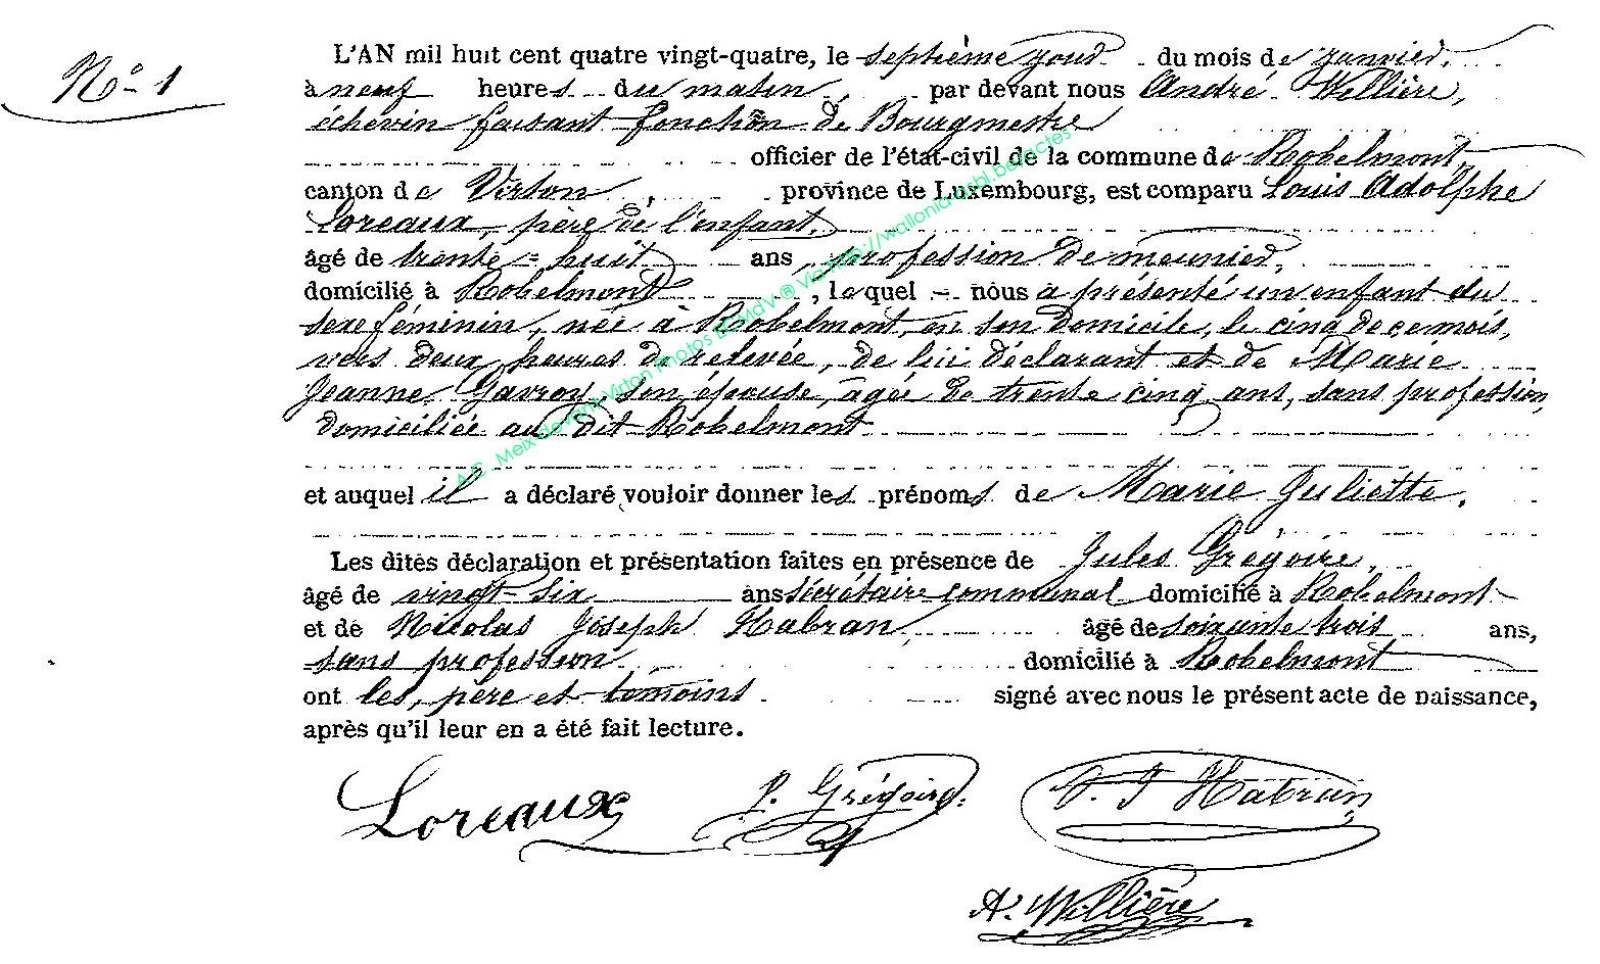 N° 1
L'AN mil huit cent quatre vingt-quatre, le septième jour du mois de janvier,
à neuf heures du matin, par devant nous André Wellière,
échevin faisant fonction de Bourgmestre
officier de l'état-civil de la commune de Robelmont,
canton de Virton, province de Luxembourg, est comparu Louis Adolphe
Loreaux, père de l'enfant,
âgé de trente-huit ans, profession de meunier,
domicilié à Robelmont, lequel nous a présenté un enfant du
sexe féminin, née à Robelmont, en son domicile, le cinq de ce mois,
vers deux heures de relevée, de lui déclarant et de Marie
Jeanne Gavroy, son épouse, agée de trente cinq ans, sans profession,
domiciliée au dit Robelmont
et auquel il a déclaré vouloir donner les prénoms de Marie Juliette.
Les dites déclaration et présentation faites en présence de Jules Grégoire,
âgé de vingt-six ans secrétaire communal domicilié à Robelmont
et de Nicolas Joseph Habran, âgé de soixante trois ans,
sans profession, domicilié à Robelmont
ont les, père et témoins signé avec nous le présent acte de naissance,
après qu'il leur en a été fait lecture.
Loreaux J. Grégoire. N. J Habran
A. Wellière